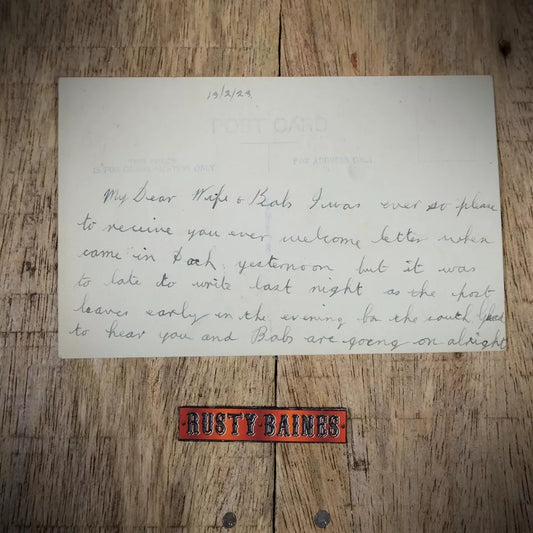 13/2/23
POST CARD
FOR ADDRESS ONLY
My Dear Wife & Babs I was ever so please
to receive you ever welcome letter when
came in yesternoon but it was
to late to write last night as the post
leaves early in the evening for the south Glad
to hear you and Babs are going on alright
RUSTY BAINES